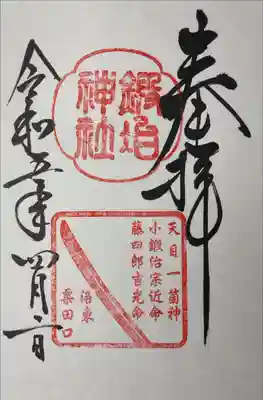 奉拝
鍛冶
神社
天目一箇神
小鍛治宗近命
藤四郎吉光命
洛東
粟田口
令和五年四月二日